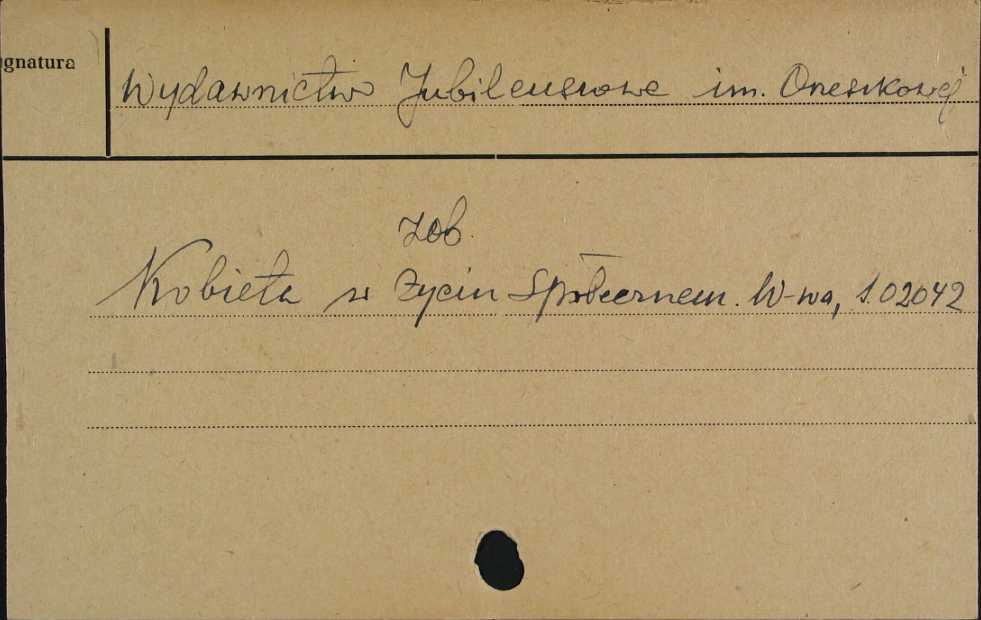 ygnatura
Wydawnictwo Jubileuszowe im. Orzeszkowej
zob.
Kobieta w życiu społecznem. W-wa, S.02042